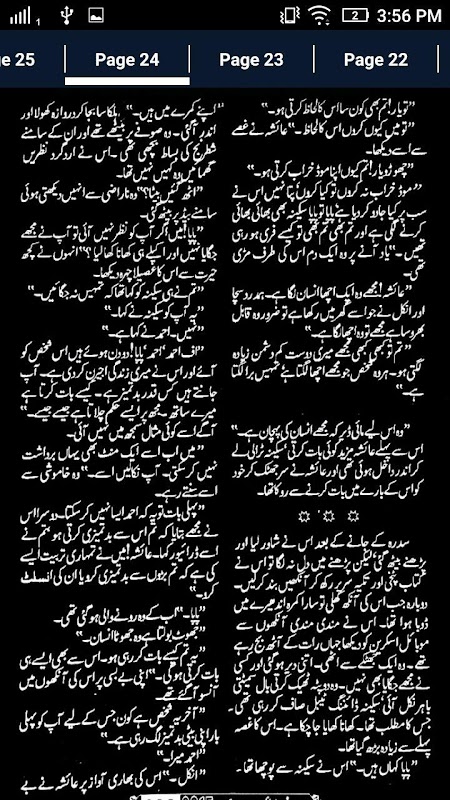 3:56 PM
ge 25
Page 24
Page 23
Page 22
”تو یار! تم بھی کون سا اس کا لحاظ کرتی ہو۔“
”تو میں کیوں کروں اس کا لحاظ۔“ عائشہ نے غصے
سے اسے دیکھا۔
”چھوڑو یار! تم کیوں اپنا موڈ خراب کرتی ہو۔“
”موڈ خراب نہ کروں تو کیا کروں پتا نہیں اس نے
سب پر کیا جادو کر دیا ہے پاپا تو پاپا سکینہ بھی بھائی بھائی
کرنے لگی ہے اور تم بھی تم بھی تو کیسے فری ہو رہی
تھیں۔“ یاد آنے پر وہ ایک دم اس کی طرف مڑی
تھی۔
”عائشہ! مجھے وہ ایک اچھا انسان لگا ہے۔ ہمدرد سچا
اور انکل نے جو اسے گھر میں رکھا ہے تو ضرور وہ قابل
بھروسا ہے مجھے تو وہ اچھا لگا ہے۔“
”تم تو کبھی کبھی مجھے میری دوست کم دشمن زیادہ
لگتی ہو۔ ہر وہ شخص جو مجھے اچھا لگتا ہے تمہیں برا لگتا
ہے۔“
”وہ اس لیے مائی ڈیر کہ مجھے انسان کی پہچان ہے۔“
اس سے پہلے عائشہ مزید کوئی بات کرتی سکینہ ٹرالی لے
کر اندر داخل ہوئی تھی اور عائشہ نے سر جھٹک کر خود
کو اس کے بارے میں بات کرنے سے روکا تھا۔
سدرہ کے جانے کے بعد اس نے شاور لیا اور
پڑھنے بیٹھ گئی لیکن پڑھنے میں دل نہ لگا تو اس نے
کتاب پٹخی اور تکیہ سر پر رکھ کر آنکھیں بند کر لیں۔
دوبارہ جب اس کی آنکھ کھلی تو سارا کمرہ اندھیرے میں
ڈوبا ہوا تھا۔ اس نے مندی مندی آنکھوں سے
موبائل اسکرین کو دیکھا جہاں رات کے آٹھ بج رہے
تھے۔ وہ ایک جھٹکے سے اٹھی۔ اتنی دیر ہو گئی اور کسی
نے مجھے جگایا بھی نہیں۔ وہ دوپٹہ ٹھیک کرتی بال سمیٹتی
باہر نکل آئی سکینہ ڈائننگ ٹیبل صاف کر رہی تھی۔
جس کا مطلب تھا۔ کھانا کھایا جا چکا ہے۔ اس کا غصہ
پہلے سے زیادہ بڑھ گیا تھا۔
”پاپا کہاں ہیں۔“ اس نے سکینہ سے پوچھا تھا۔
”اپنے کمرے میں ہیں۔“ ہلکا سا بجا کر دروازہ کھولا اور
اندر آ گئی۔ وہ صوفے پر بیٹھے تھے اور ان کے سامنے
شطرنج کی بساط بچھی تھی۔ اس نے ارد گرد نظریں
گھما میں وہ کہیں نہیں تھا۔
”اٹھ گئیں بیٹا؟“ وہ ناراضی سے انہیں دیکھتی ہوئی
سامنے بیڈ پر بیٹھ گئی۔
”پاپا! میں اگر آپ کو نظر نہیں آئی تو آپ نے مجھے
جگایا نہیں اور اکیلے ہی کھانا کھا لیا؟“ انہوں نے کچھ
حیرت سے اس کا غصیلا چہرہ دیکھا۔
”تم نے ہی سکینہ کو کہا تھا کہ تمہیں نہ جگائیں۔“
”یہ آپ کو سکینہ نے کہا۔“
”نہیں۔ احمد نے کہا ہے۔“
”اف احمد احمد پاپا! دو دن ہوئے ہیں اس شخص کو
آئے اور اس نے میری زندگی اجیرن کر دی ہے۔ آپ
جانتے ہیں کس قدر بدتمیز ہے۔ کیسے بات کرتا ہے
میرے ساتھ۔ مجھ پر ایسے حکم چلاتا ہے جیسے جیسے۔“
آگے اسے کوئی مثال سمجھ میں نہیں آئی۔
”میں اب اسے ایک منٹ بھی یہاں برداشت
نہیں کر سکتی۔ آپ نکالیں اسے۔“ وہ خاموشی سے
اسے سنتے رہے۔
”پہلی بات تو یہ کہ احمد ایسا نہیں کر سکتا۔ دوسرا اس
نے مجھے بتایا کہ تم اس سے بدتمیزی کرتی ہو تم نے
اسے ڈرائیور کہا۔ عائشہ! میں نے تمہاری تربیت ایسے
کی ہے کہ تم بڑوں سے بدتمیزی کرو یا ان کی انسلٹ
کرو۔“
”پاپا۔“ اب کے وہ رونے والی ہو گئی تھی۔
”جھوٹ بولتا ہے وہ جھوٹا انسان۔“
”یہ تم کیسے بات کر رہی ہو۔ اس سے بھی ایسے ہی
بات کرتی ہو گی۔“ اپنی بے بسی پر اس کی آنکھوں میں
آنسو آ گئے تھے۔
”آخر یہ شخص ہے کون جس کے لیے آپ کو پہلی
بار اپنی بیٹی بدتمیز لگ رہی ہے۔“
”احمد میرا۔“
”انکل۔“ اس کی بھاری آواز پر عائشہ نے بے